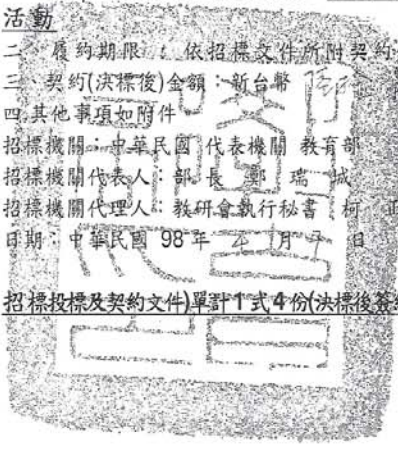 活動
二、履約期限：依招標文件所附契約
三、契約(決標後)金額：新台幣
四、其他事項如附件
招標機關：中華民國 代表機關 教育部
招標機關代表人：部 長 鄭 瑞 城
招標機關代理人：教研會執行秘書 柯
日期：中華民國 98 年 月 日
招標投標及契約文件)單計1式4份(決標後簽